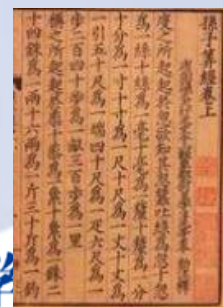 孫子算經卷上
度之所起起於忽欲知其忽蠶吐絲為忽十忽
為一絲十絲為一毫十毫為一氂十氂為一分
十分為一寸十寸為一尺十尺為一丈十丈為
一引五十尺為一端四十尺為一疋六尺為一
步二百四十步為一畝三百步為一里
稱之所起起於黍十黍為一絫十絫為一銖二
十四銖為一兩十六兩為一斤三十斤為一鈞